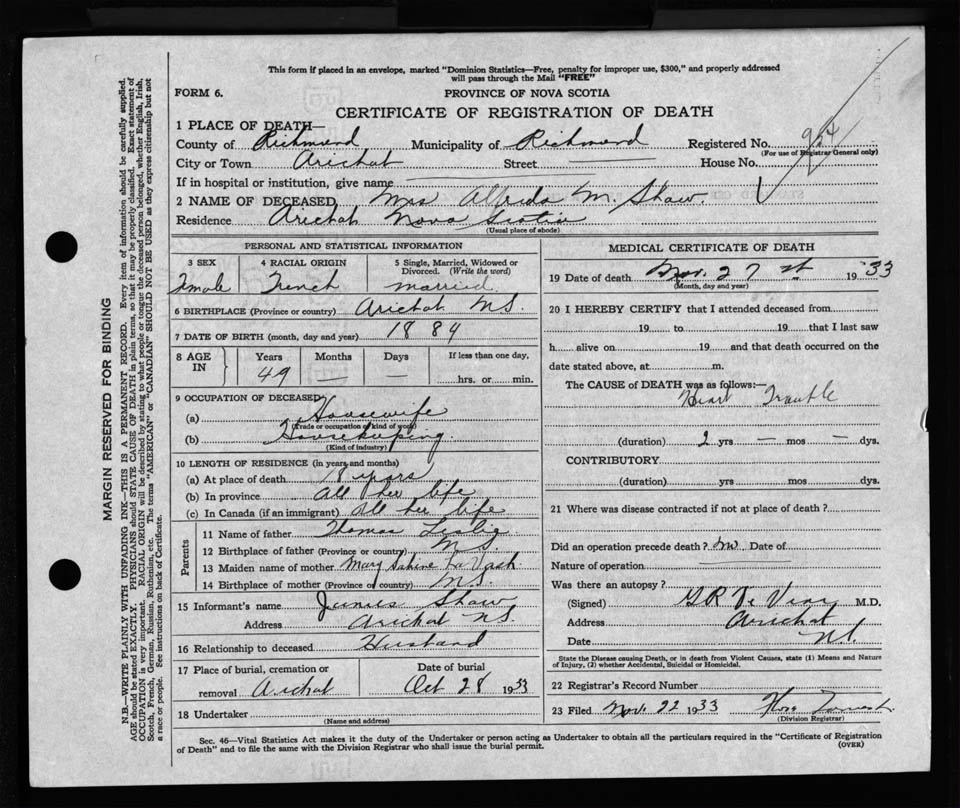 This form if placed in an envelope, marked "Dominion Statistics—Free, penalty for improper use, $300," and properly addressed
will pass through the Mail "FREE"
FORM 6.
PROVINCE OF NOVA SCOTIA
CERTIFICATE OF REGISTRATION OF DEATH
1 PLACE OF DEATH—
County of Richmond Municipality of Richmond Registered No.
(For use of Registrar General only)
City or Town Arichat Street House No.
If in hospital or institution, give name
2 NAME OF DECEASED Mrs Alfreda M. Shaw.
Residence Arichat Nova Scotia
(Usual place of abode)
PERSONAL AND STATISTICAL INFORMATION
3 SEX 4 RACIAL ORIGIN 5 Single, Married, Widowed or
Divorced. (Write the word)
Female French married.
6 BIRTHPLACE (Province or country) Arichat N.S.
7 DATE OF BIRTH (month, day and year) 1884
8 AGE IN Years Months Days If less than one day,
49 — — hrs. or min.
9 OCCUPATION OF DECEASED
(a) Housewife
(Trade or occupation or kind of work)
(b) Housekeeping.
(Kind of industry)
10 LENGTH OF RESIDENCE (in years and months)
(a) At place of death 18 years
(b) In province all her life
(c) In Canada (if an immigrant) all her life
Parents
11 Name of father Thomas
12 Birthplace of father (Province or country) N.S.
13 Maiden name of mother Mary Sabine La Vash
14 Birthplace of mother (Province of country) N.S.
15 Informant's name Junius Shaw
Address Arichat N.S.
16 Relationship to deceased Husband
17 Place of burial, cremation or Date of burial
removal Arichat Oct 28 1933
18 Undertaker
(Name and address)
MEDICAL CERTIFICATE OF DEATH
19 Date of death Nov. 27 st 1933
(Month, day and year)
20 I HEREBY CERTIFY that I attended deceased from
19 to 19 that I last saw
h alive on 19 and that death occurred on the
date stated above, at m.
The CAUSE of DEATH was as follows:—
Heart Trouble
(duration) 2 yrs — mos — dys.
CONTRIBUTORY
(duration) yrs mos dys.
21 Where was disease contracted if not at place of death?
Did an operation precede death? no Date of
Nature of operation
Was there an autopsy?
(Signed) M.D.
Address Arichat
Date N.S.
State the Disease causing Death, or in death from Violent Causes, state (1) Means and Nature
of Injury, (2) whether Accidental, Suicidal or Homicidal.
22 Registrar's Record Number
23 Filed Nov. 22 1933
(Division Registrar)
Sec. 46—Vital Statistics Act makes it the duty of the Undertaker or person acting as Undertaker to obtain all the particulars required in the "Certificate of Registration
of Death" and to file the same with the Division Registrar who shall issue the burial permit.
(OVER)
MARGIN RESERVED FOR BINDING
N.B.—WRITE PLAINLY WITH UNFADING INK—THIS IS A PERMANENT RECORD. Every item of information should be carefully supplied.
AGE should be stated EXACTLY. PHYSICIANS should STATE CAUSE OF DEATH in plain terms, so that it may be properly classified. Exact statement of
OCCUPATION is very important. RACIAL ORIGIN will be described by stating to what people or tongue the deceased person belonged, whether English, Irish,
Scotch, French, German, Russian, Ruthenian, etc. The terms "AMERICAN" or "CANADIAN" SHOULD NOT BE USED as they express citizenship but not
a race or people. See instructions on back of Certificate.